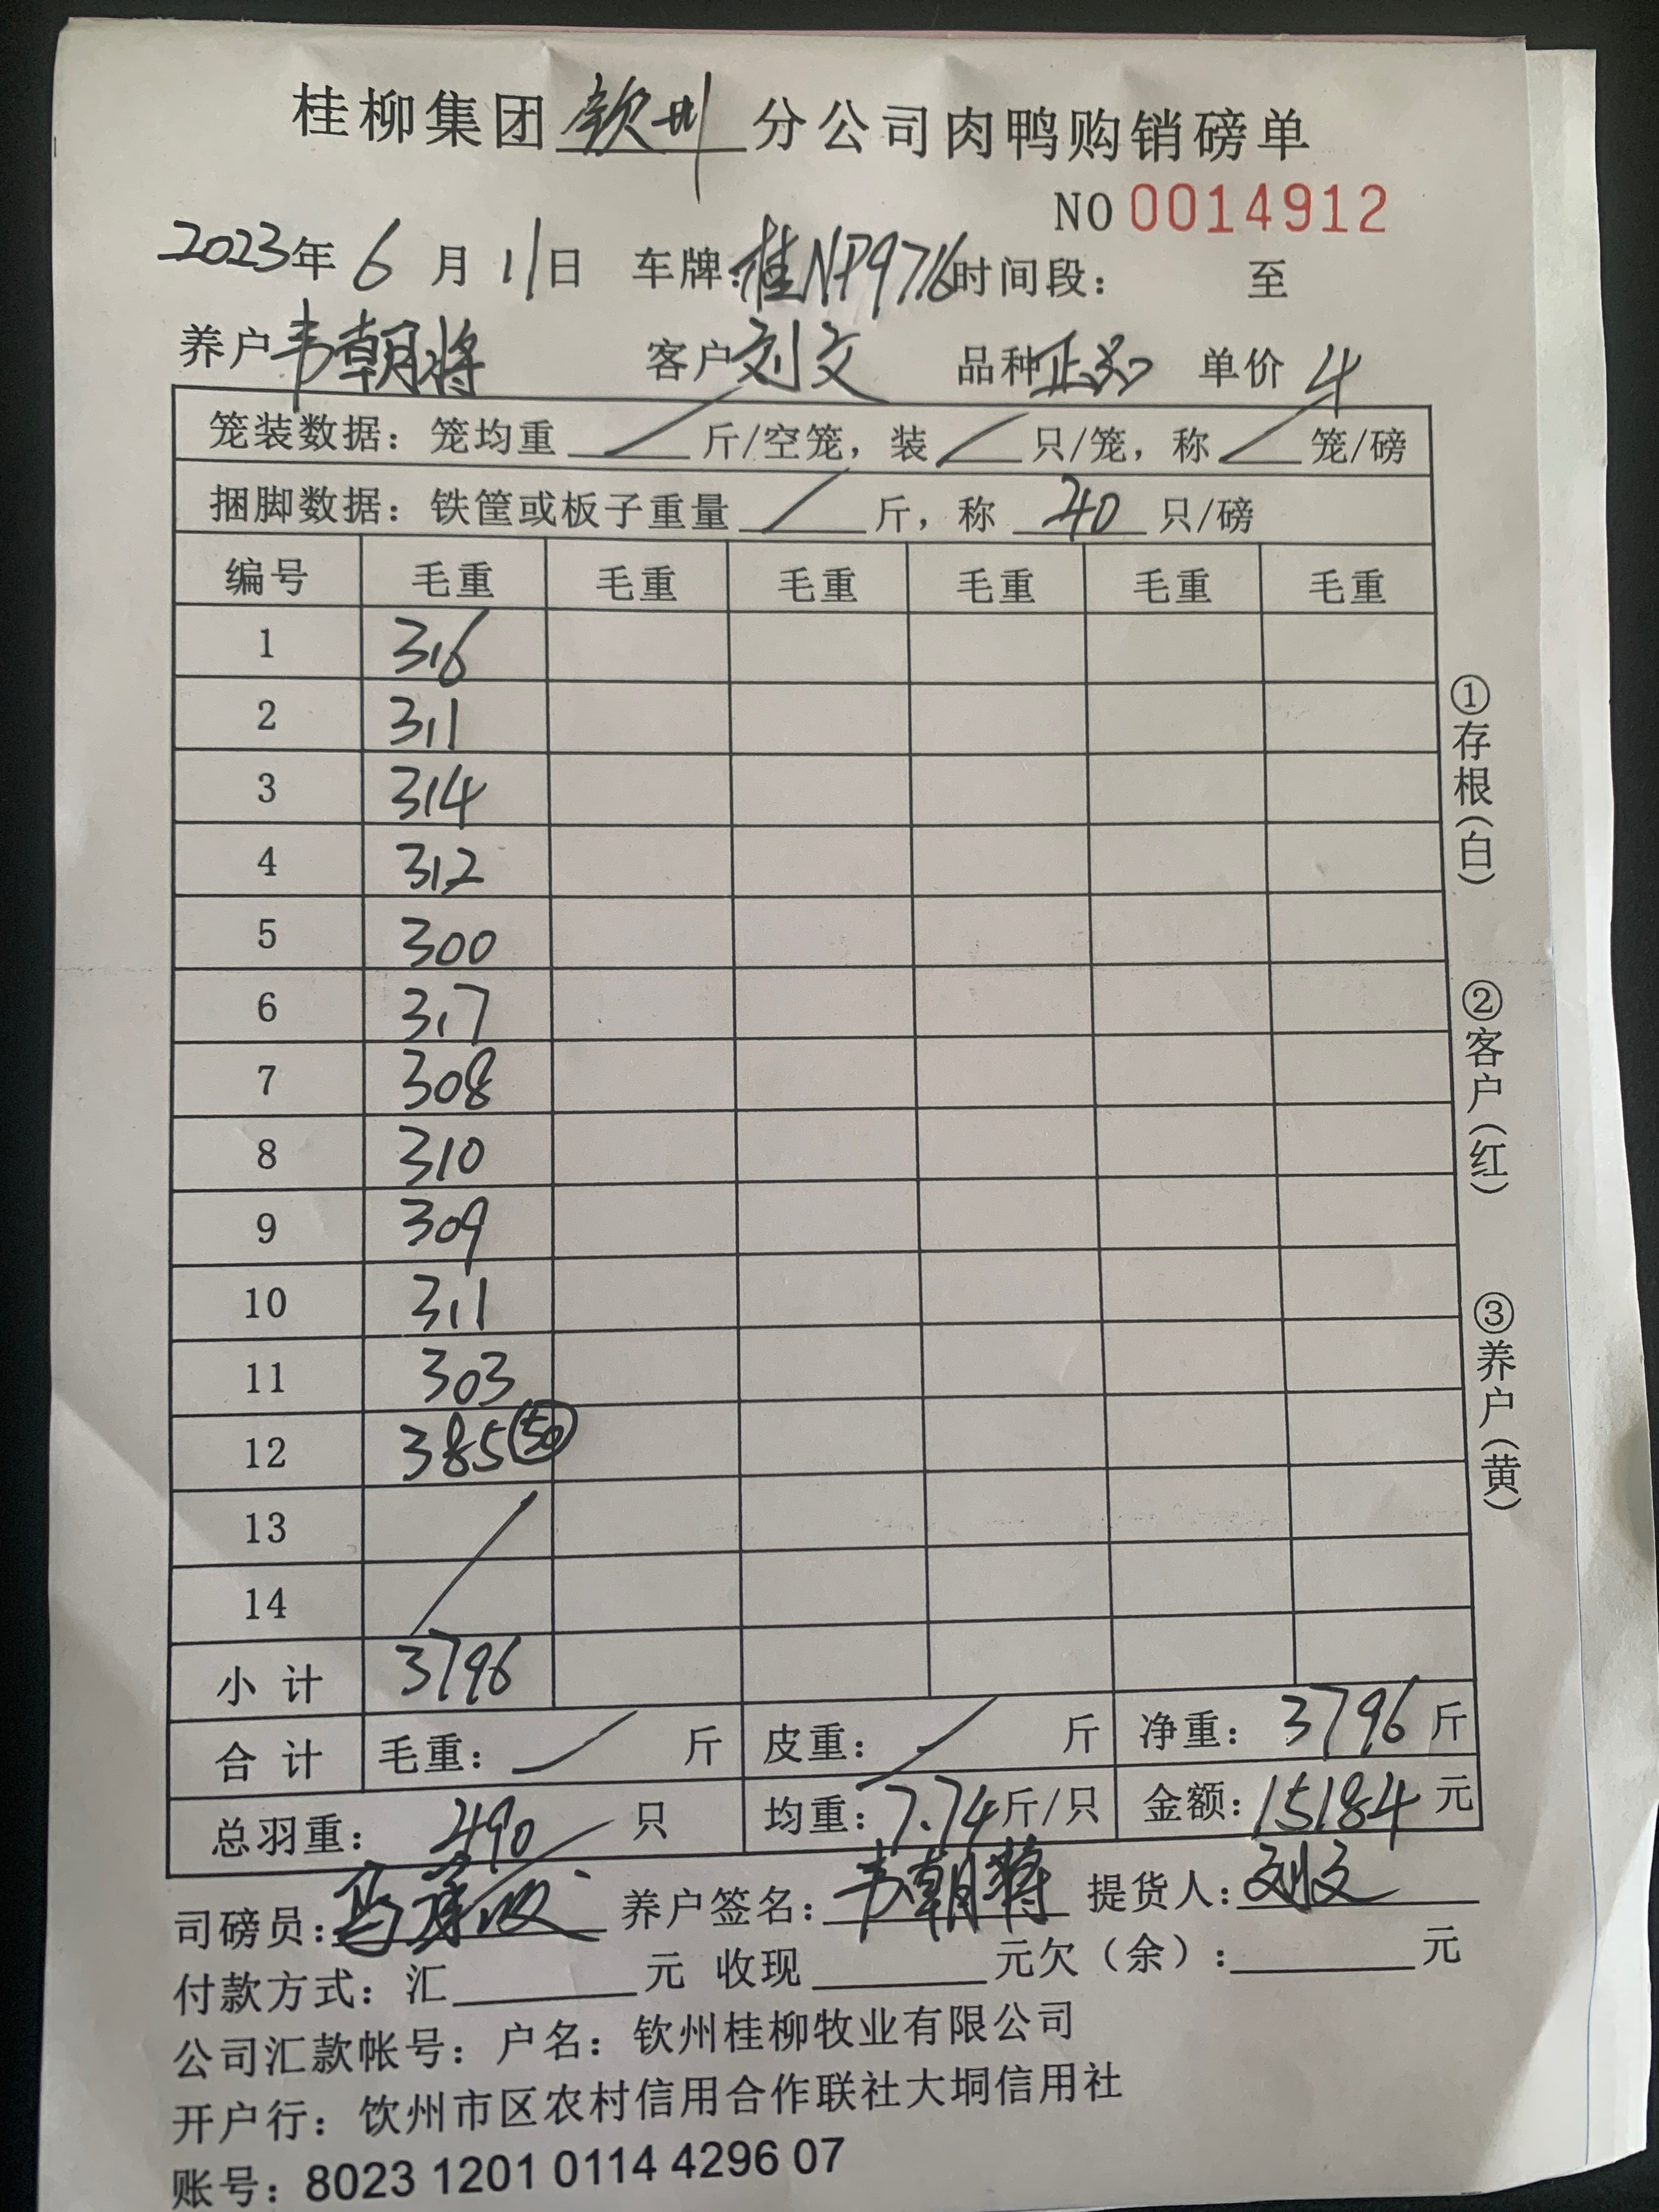 桂柳集团钦州分公司肉鸭购销磅单
NO 0014912
2023年6月11日 车牌:桂NP9716时间段: 至
养户韦朝将 客户刘文 品种 单价4
笼装数据:笼均重/斤/空笼,装/只/笼,称/笼/磅
捆脚数据:铁筐或板子重量/斤,称40只/磅
编号 毛重 毛重 毛重 毛重 毛重 毛重
1 316
2 311
3 314
4 312
5 300
6 317
7 308
8 310
9 309
10 311
11 303
12 385 50
13
14
小计 3796
合计 毛重:/斤 皮重:/斤 净重:3796斤
总羽重:490只 均重:7.74斤/只 金额:15184元
司磅员: 养户签名:韦朝将 提货人:刘文
付款方式:汇 元 收现 元欠(余): 元
公司汇款帐号:户名:钦州桂柳牧业有限公司
开户行:钦州市区农村信用合作联社大垌信用社
账号:8023 1201 0114 4296 07
①存根(白)
②客户(红)
③养户(黄)